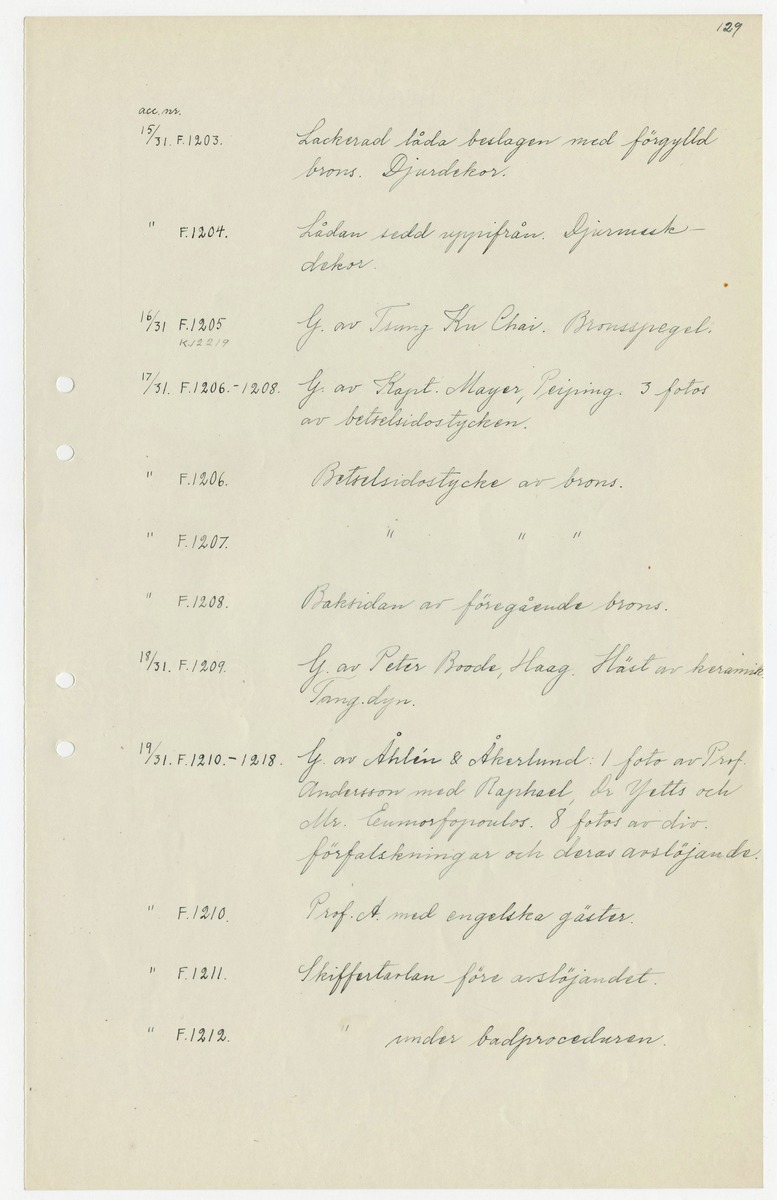 129
acc. nr.
15/31. F.1203. Lackerad låda beslagen med förgylld
brons. Djurdekor.
" F.1204. Lådan sedd uppifrån. Djurmask-
dekor.
16/31 F.1205 G. av Tsung Ku Chai. Bronsspegel.
K12219
17/31. F.1206.-1208. G. av Kapt. Mayer, Peiping. 3 fotos
av betselsidostycken.
" F.1206. Betselsidostycke av brons.
" F.1207. " " "
" F.1208. Baksidan av föregående brons.
18/31. F.1209. G. av Peter Boode, Haag. Häst av keramik
Tang.dyn.
19/31. F.1210.-1218. G. av Åhlén & Åkerlund: 1 foto av Prof.
Andersson med Raphael, Dr Yetts och
Mr. Eumorfopoulos. 8 fotos av div.
förfalskningar och deras avslöjande.
" F.1210. Prof. A. med engelska gäster.
" F.1211. Skiffertavlan före avslöjandet.
" F.1212. " under badproceduren.